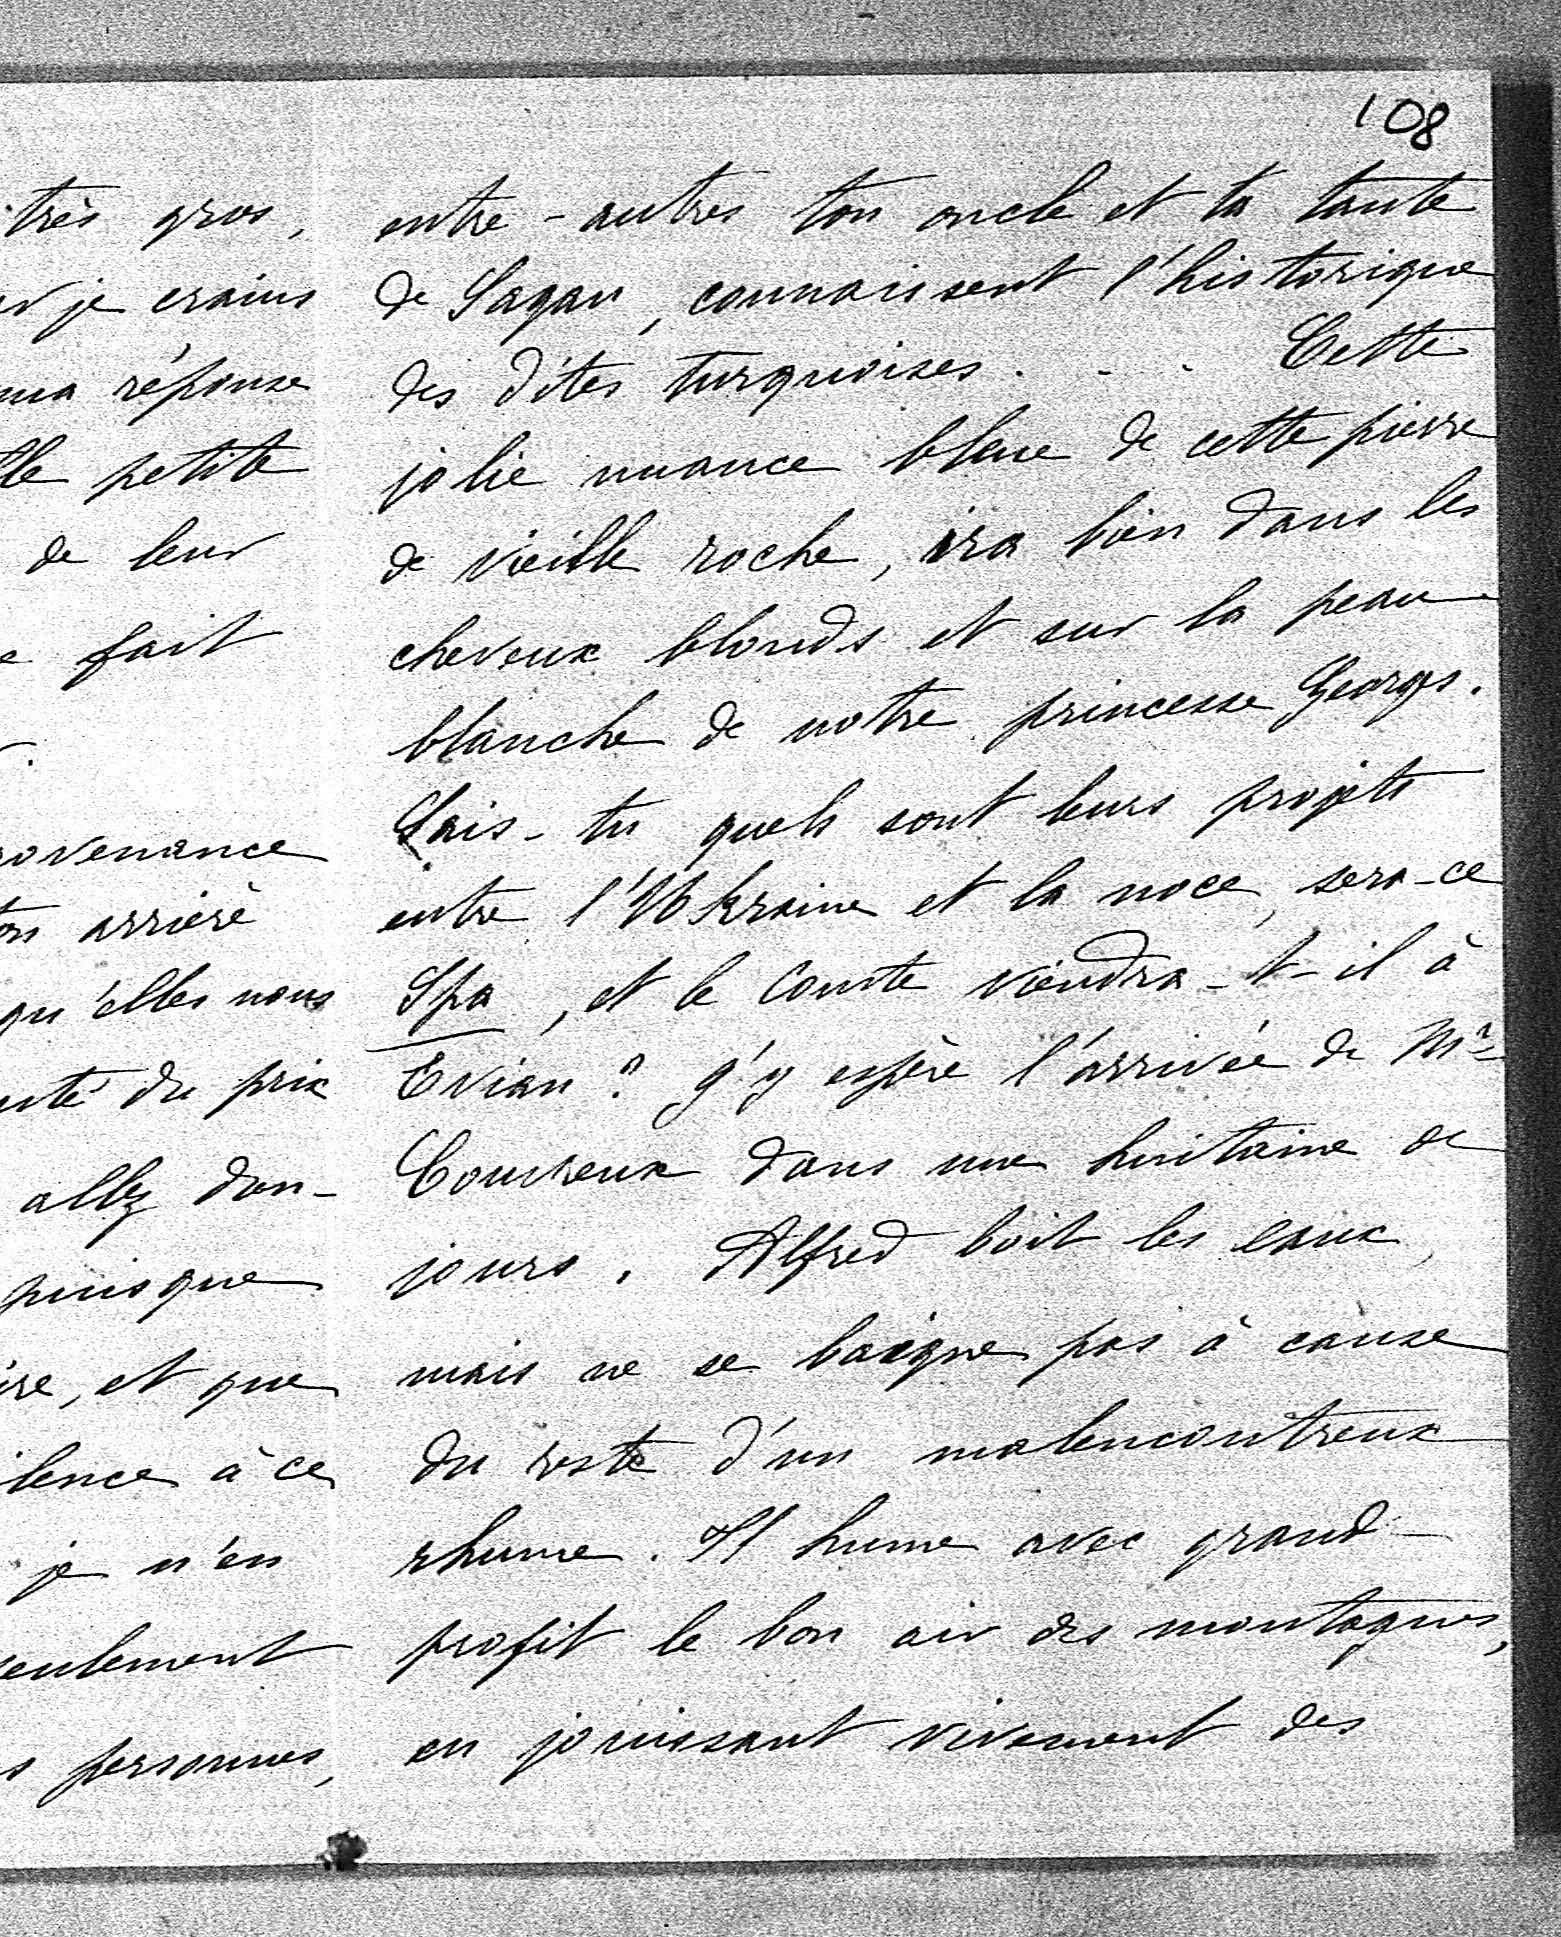 108
très gros,
je crains
ma réponse
petite
de leur
fait
provenance
arrière
qu'elles nous
du prix
allez don-
puisque
et que
à ce
je n'en
seulement
personnes,
entre-autres ton oncle et ta tante
de Sagan, connaissent l'historique
des dites turquoises. . . Cette
jolie nuance bleue de cette pierre
de vieille roche, ira bien dans les
cheveux blonds et sur la peau
blanche de notre princesse Georges.
Sais-tu quels sont leurs projets
entre l'Ukraine et la noce, sera-ce
Spa, et le Comte viendra-t-il à
Evian? J'y espère l'arrivée de Mr
Couvreux dans une huitaine de
jours. Alfred boit les eaux,
mais ne se baigne pas à cause
du reste d'un malencontreux
rhume. Il hume avec grand
profit le bon air des montagnes,
en jouissant vivement des